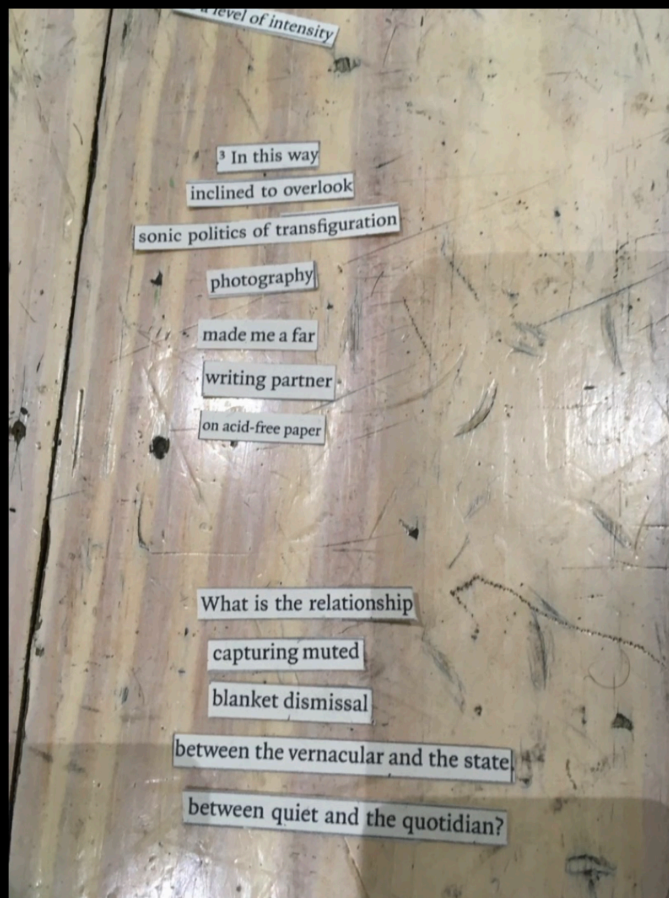 a level of intensity
³ In this way
inclined to overlook
sonic politics of transfiguration
photography
made me a far
writing partner
on acid-free paper
What is the relationship
capturing muted
blanket dismissal
between the vernacular and the state,
between quiet and the quotidian?